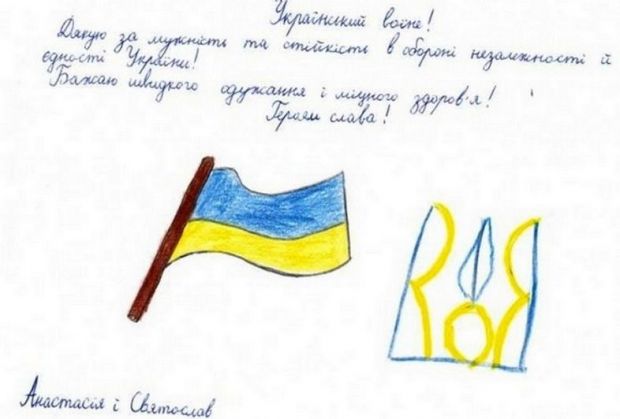 Український воїне!
Дякую за мужність та стійкість в обороні незалежності й
єдності України!
Бажаю швидкого одужання і міцного здоров'я!
Героям слава!
Анастасія і Святослав